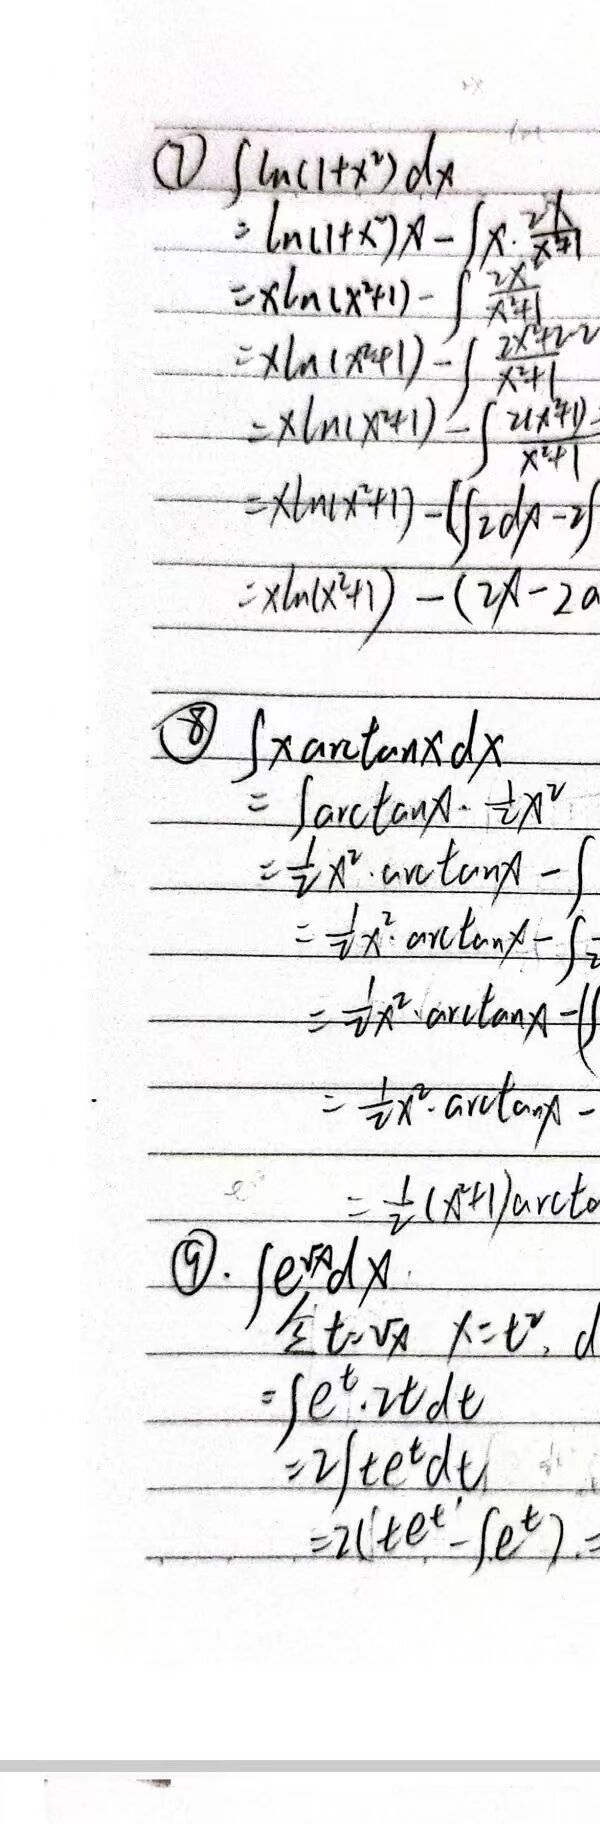 ⑦ ∫ln(1+x²)dx
= ln(1+x²)x - ∫x·2x/x²+1
=xln(x²+1) - ∫2x²/x²+1
=xln(x²+1) - ∫2x²+2-2/x²+1
=xln(x²+1) - ∫2(x²+1)-/x²+1
=xln(x²+1) -(∫2dx-2∫
=xln(x²+1) -(2x-2a
⑧ ∫xarctanxdx
= ∫arctanx·1/2x²
=1/2x²·arctanx - ∫
=1/2x²·arctanx - ∫1/2
=1/2x²·arctanx -(∫
=1/2x²·arctanx -
=1/2(x²+1)arcta
⑨. ∫e^√x dx.
令t=√x x=t², d
=∫e^t·2tdt
=2∫te^tdt
=2(te^t-∫e^t).=